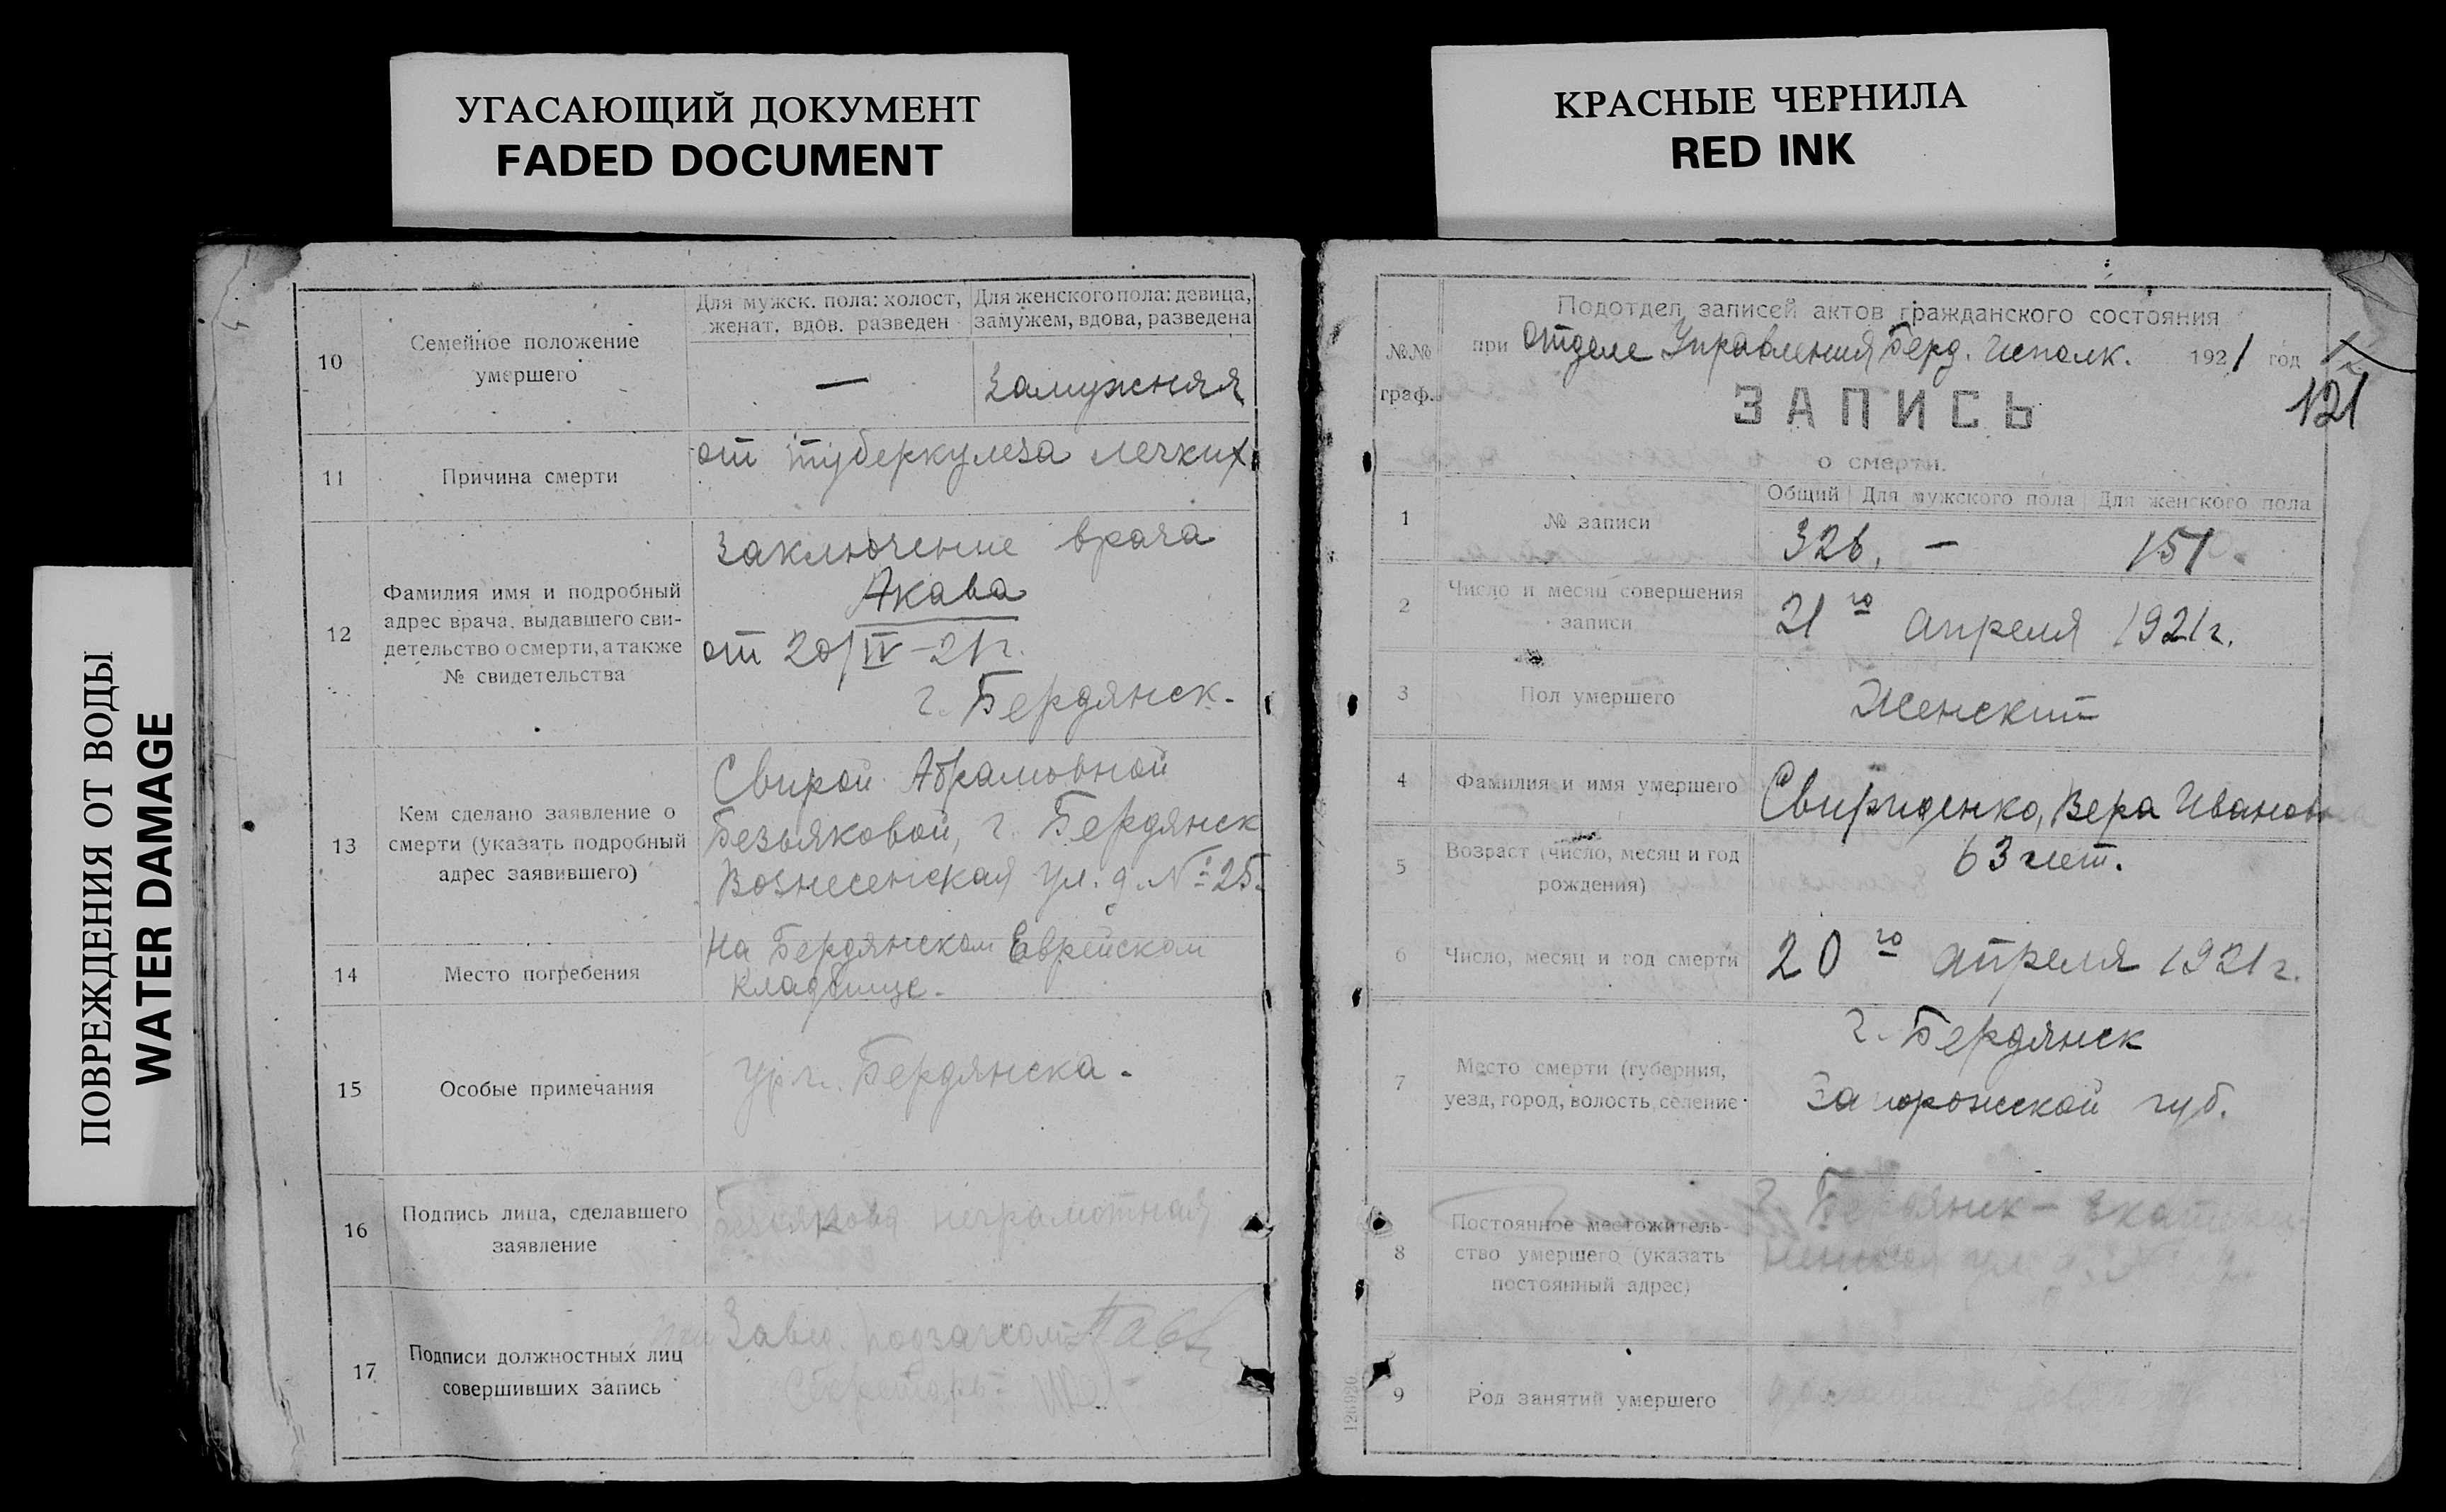 УГАСАЮЩИЙ ДОКУМЕНТ
FADED DOCUMENT
КРАСНЫЕ ЧЕРНИЛА
RED INK
ПОВРЕЖДЕНИЯ ОТ ВОДЫ
WATER DAMAGE
10
Семейное положение
умершего
Для мужск. пола: холост,
женат, вдов, разведен
Для женского пола: девица,
замужем, вдова, разведена
—
Замужняя
11
Причина смерти
от туберкулеза легких
12
Фамилия имя и подробный
адрес врача, выдавшего сви-
детельство о смерти, а также
№ свидетельства
Заключение врача
Акава
от 20/IV-21 г.
г. Бердянск.
13
Кем сделано заявление о
смерти (указать подробный
адрес заявившего)
Свирой Абрамовной
Безьяковой, г. Бердянск
Вознесенская ул. д. № 25.
14
Место погребения
На Бердянском Еврейском
кладбище.
15
Особые примечания
ур. г. Бердянска.
16
Подпись лица, сделавшего
заявление
Безьякова неграмотная
17
Подписи должностных лиц
совершивших запись
Завед.
Секретарь
Подотдел записей актов гражданского состояния
№№
граф.
при Отделе Управления Берд. Исполк. 1921 год
121
ЗАПИСЬ
о смерти.
1
№ записи
Общий Для мужского пола Для женского пола
326, — 151.
2
Число и месяц совершения
записи
21го апреля 1921 г.
3
Пол умершего
Женский
4
Фамилия и имя умершего
Свириденко, Вера Ивановна
5
Возраст (число, месяц и год
рождения)
63 лет.
6
Число, месяц и год смерти
20го апреля 1921 г.
7
Место смерти (губерния,
уезд, город, волость, селение
г. Бердянск
Запорожской губ.
8
Постоянное местожитель-
ство умершего (указать
постоянный адрес)
г. Бердянск —
ул. д. №
9
Род занятий умершего
126920